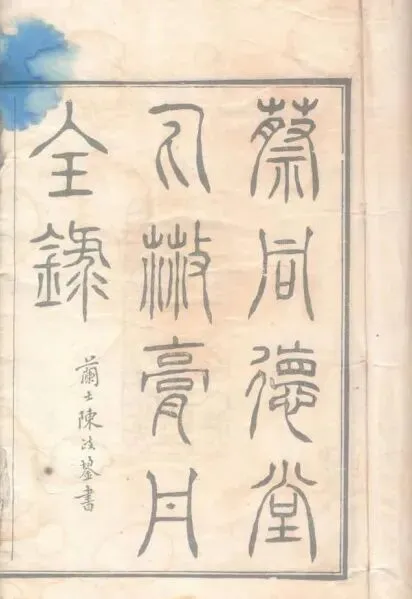 蔡同德堂
丸散膏丹
全錄
蘭士陳書